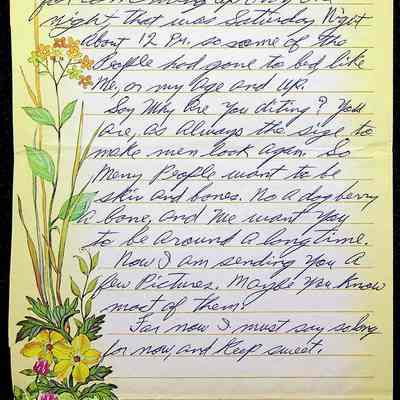 up
night that was Saturday Night
about 12 Pm. so some of the
People had gone to bed, like
Me, or my Age and up.
Say Why Are You diting? You
are, as Always the size to
make men look again. So
Meny People want to be
skin and bones. No a dog berry
a bone, and We want You
to be Around a long time.
Now I am sending You A
few Pictures. Maybe You Know
most of them.
For now I must say solong
for now, and Keep sweet.